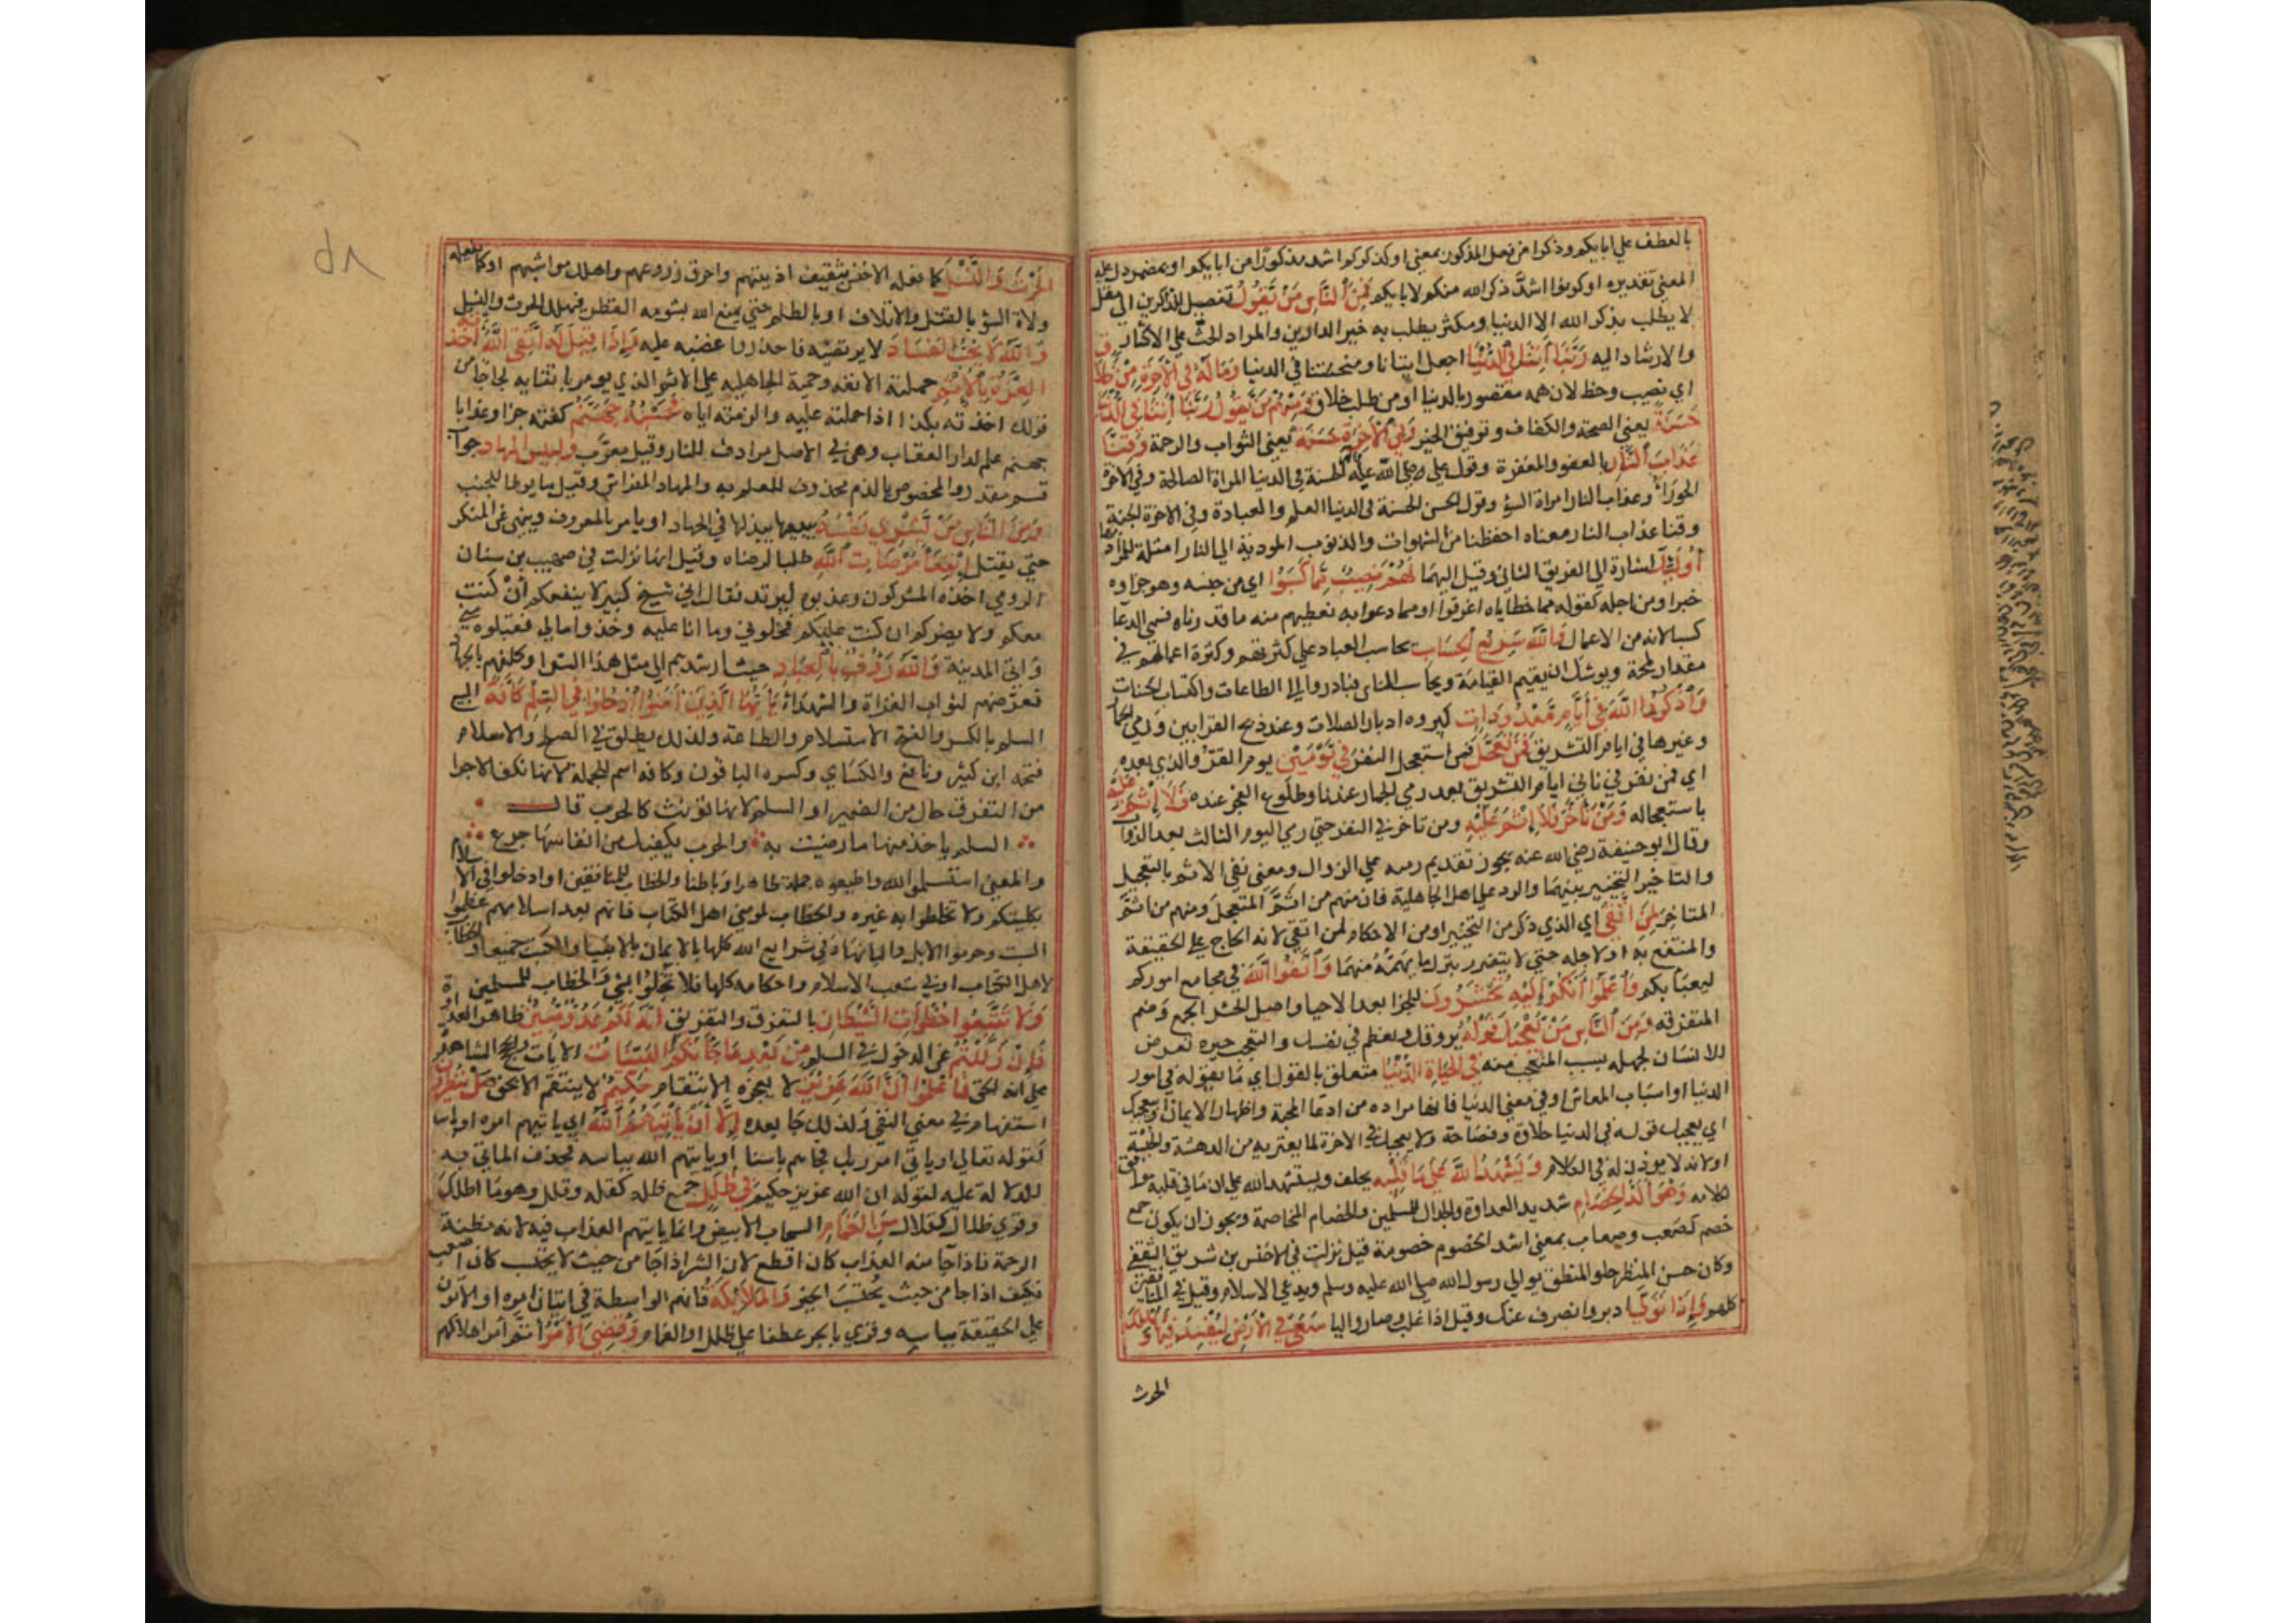 بالعطف علي ابايكم وذكرا من فعل المذكور بمعني او كذكركم اشد مذكورا من ابايكم او بمضمر دل عليه
المعني تقديره او كونوا اشد ذكرا لله منكم لابايكم فَمِنَ النَّاسِ مَنْ يَقُولُ تفصيل للذاكرين الي مقل
لا يطلب بذكر الله الا الدنيا ومكثر يطلب به خير الدارين والمراد الحث علي الاكثار
والارشاد اليه رَبَّنَا آتِنَا فِي الدُّنْيَا اجعل ايتانا ومنحتنا في الدنيا وَمَا لَهُ فِي الْآخِرَةِ مِنْ خَلَاقٍ
اي نصيب وحظ لان همه مقصور بالدنيا او من طلب خلاق وَمِنْهُمْ مَنْ يَقُولُ رَبَّنَا آتِنَا فِي الدُّنْيَا
حَسَنَةً يعني الصحة والكفاف وتوفيق الخير وَفِي الْآخِرَةِ حَسَنَةً يعني الثواب والرحمة وَقِنَا
عَذَابَ النَّارِ بالعفو والمغفرة وقول علي الحسنة في الدنيا المراة الصالحة وفي الاخرة
الحورا وعذاب النار امراة السؤ وقول الحسن الحسنة في الدنيا العلم والعبادة وفي الاخرة الجنة
وقنا عذاب النار معناه احفظنا من الشهوات والذنوب المودية الي النار امثلة للمراد بها
أُولَئِكَ اشارة الي الفريق الثاني وقيل اليهما لَهُمْ نَصِيبٌ مِمَّا كَسَبُوا اي من جنسه وهو جزاوه
خبرا ومن اجله كقوله مما خطاياه اغرقوا او مما دعوا به نعطيهم منه ما قدرناه فسمي الدعا
كسبا لانه من الاعمال وَاللَّهُ سَرِيعُ الْحِسَابِ يحاسب العباد علي كثرتهم وكثرة اعمالهم في
مقدار لمحة ويوشك ان يقيم القيامة ويحاسب الناس فبادروا الي الطاعات واكتساب الحسنات
وَاذْكُرُوا اللَّهَ فِي أَيَّامٍ مَعْدُودَاتٍ كبروه ادبار الصلات وعند ذبح القرابين ورمي الجمار
وغيرها في ايام التشريق فَمَنْ تَعَجَّلَ فمن استعجل النفر فِي يَوْمَيْنِ يوم القر والذي بعده
اي فمن نفر في ثاني ايام التشريق بعد رمي الجمار عندنا وطلوع الفجر عنده فَلَا إِثْمَ عَلَيْهِ
باستعجاله وَمَنْ تَأَخَّرَ فَلَا إِثْمَ عَلَيْهِ ومن تاخر في النفر حتي رمي اليوم الثالث بعد الزوال
وقال ابو حنيفة رضي الله عنه يجوز تقديم رميه علي الزوال ومعني نفي الاثم بالتعجيل
والتاخير التخيير بينهما والرد علي اهل الجاهلية فان منهم من اثم المتعجل ومنهم من اثم
المتاخر لِمَنِ اتَّقَى اي الذي ذكر من التخيير او من الاحكام لمن اتقي لانه الحاج علي الحقيقة
والمنتفع به او لاجله حتي لا يتضرر بترك ما يهمه منهما وَاتَّقُوا اللَّهَ في مجامع اموركم
ليعبأ بكم وَاعْلَمُوا أَنَّكُمْ إِلَيْهِ تُحْشَرُونَ للجزا بعد الاحيا واصل الحشر الجمع وضم
المتفرقه وَمِنَ النَّاسِ مَنْ يُعْجِبُكَ قَوْلُهُ يروقك ويعظم في نفسك والتعجب حيرة تعرض
للانسان لجهله بسبب المتعجب منه فِي الْحَيَاةِ الدُّنْيَا متعلق بالقول اي ما يقوله في امور
الدنيا او اسباب المعاش او في معني الدنيا فانها مراده من ادعا المحبة واظهار الايمان او يعجبك
اي يعجبك قوله في الدنيا حلاوة وفصاحة ولا يعجبك في الاخرة لما يعتريه من الدهشة والحبسة
او لانه لا يوذن له في الكلام وَيُشْهِدُ اللَّهَ عَلَى مَا فِي قَلْبِهِ يحلف ويستشهد الله علي ان ما في قلبه موافق
لكلامه وَهُوَ أَلَدُّ الْخِصَامِ شديد العداوة والجدال للمسلمين والخصام المخاصمة ويجوز ان يكون جمع
خصم كصعب وصعاب بمعني اشد الخصوم خصومة قيل نزلت في الاخنس بن شريق الثقفي
وكان حسن المنظر حلو المنطق يوالي رسول الله صلي الله عليه وسلم ويدعي الاسلام وقيل في المنافقين
كلهم وَإِذَا تَوَلَّى ادبر وانصرف عنك وقيل اذا غلب وصار واليا سَعَى فِي الْأَرْضِ لِيُفْسِدَ فِيهَا وَيُهْلِكَ
الحرث
الْحَرْثَ وَالنَّسْلَ كما فعله الاخنس بثقيف اذ بيتهم واحرق زروعهم واهلك مواشيهم او كما يفعله
ولاة السؤ بالقتل والاتلاف او بالظلم حتي يمنع الله بشومه القطر فيهلك الحرث والنسل
وَاللَّهُ لَا يُحِبُّ الْفَسَادَ لا يرتضيه فاحذروا غضبه عليه وَإِذَا قِيلَ لَهُ اتَّقِ اللَّهَ أَخَذَتْهُ
الْعِزَّةُ بِالْإِثْمِ حملته الانفه وحمية الجاهليه علي الاثم الذي يومر باتقايه لجاجا من
قولك اخذته بكذا اذا حملته عليه والزمته اياه فَحَسْبُهُ جَهَنَّمُ كفته جزا وعذابا
جهنم علم لدار العقاب وهي في الاصل مرادف للنار وقيل معرب وَلَبِئْسَ الْمِهَادُ جواب
قسم مقدر والمخصوص بالذم محذوف للعلم به والمهاد الفراش وقيل ما يوطا للجنب
وَمِنَ النَّاسِ مَنْ يَشْرِي نَفْسَهُ يبيعها يبذلها في الجهاد او يامر بالمعروف وينهي عن المنكر
حتي يقتل ابْتِغَاءَ مَرْضَاتِ اللَّهِ طلبا لرضاه وقيل انها نزلت في صهيب بن سنان
الرومي اخذه المشركون وعذبوه ليرتد فقال اني شيخ كبير لا ينفعكم ان كنت
معكم ولا يضركم ان كنت عليكم فخلوني وما انا عليه وخذوا مالي فقبلوه
واتي المدينة وَاللَّهُ رَءُوفٌ بِالْعِبَادِ حيث ارشدهم الي مثل هذا الشرا وكلفهم بالجهاد
فعرضهم لثواب الغزاة والشهداء يَا أَيُّهَا الَّذِينَ آمَنُوا ادْخُلُوا فِي السِّلْمِ كَافَّةً
السلم بالكسر والفتح الاستسلام والطاعة ولذلك يطلق في الصلح والاسلام
فتحه ابن كثير ونافع والكساي وكسره الباقون وكافه اسم للجملة لانها تكف الاجزا
من التفرق حال من الضمير او السلم لانها تؤنث كالحرب قال
السلم ياخذ منها ما رضيت به والحرب يكفيك من انفاسها جرع
والمعني استسلموا لله واطيعوه جملة ظاهرا وباطنا والخطاب للمنافقين او ادخلوا في الاسلام
بكليتكم ولا تخلطوا به غيره والخطاب لمومني اهل الكتاب فانهم بعد اسلامهم عظموا
السبت وحرموا الابل والبانها او في شرايع الله كلها بالايمان بالانبيا والكتب جميعا والخطاب
لاهل الكتاب او في شعب الاسلام واحكامه كلها فلا تخلوا بشي والخطاب للمسلمين
وَلَا تَتَّبِعُوا خُطُوَاتِ الشَّيْطَانِ بالتفرق والتفريق إِنَّهُ لَكُمْ عَدُوٌّ مُبِينٌ ظاهر العداوة
فَإِنْ زَلَلْتُمْ عن الدخول في السلم مِنْ بَعْدِ مَا جَاءَتْكُمُ الْبَيِّنَاتُ الايات والحجج الشاهدة
علي انه الحق فَاعْلَمُوا أَنَّ اللَّهَ عَزِيزٌ لا يعجزه الانتقام حَكِيمٌ لا ينتقم الا بحق هَلْ يَنْظُرُونَ
استفهام في معني النفي ولذلك جا بعده إِلَّا أَنْ يَأْتِيَهُمُ اللَّهُ اي ياتيهم امره او باسه
كقوله تعالي او ياتي امر ربك فجاهم باسنا او ياتيهم الله بباسه فحذف الماتي به
للدلالة عليه لقوله ان الله عزيز حكيم فِي ظُلَلٍ جمع ظلة كقلة وقلل وهو ما اظلك
وقري ظلال كقلال مِنَ الْغَمَامِ السحاب الابيض وانما ياتيهم العذاب فيه لانه مظنة
الرحمة فاذا جا منه العذاب كان افظع لان الشر اذا جا من حيث لا يحتسب كان اصعب
فكيف اذا جا من حيث يحتسب الخير وَالْمَلَائِكَةُ فانهم الواسطة في اتيان امره او الاتون
علي الحقيقة بباسه وقري بالجر عطفا علي ظلل او الغمام وَقُضِيَ الْأَمْرُ اتم امر اهلاكهم